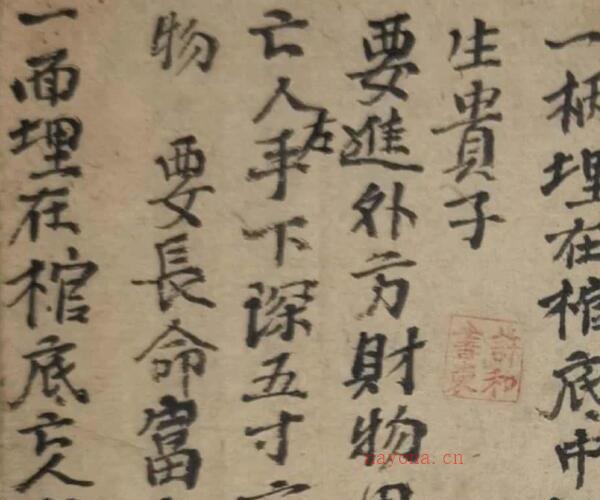 一柄埋在棺底中
生貴子
要進外方財物用
亡人左手下深五寸
物 要長命富
一面埋在棺底亡人
nayona.cn